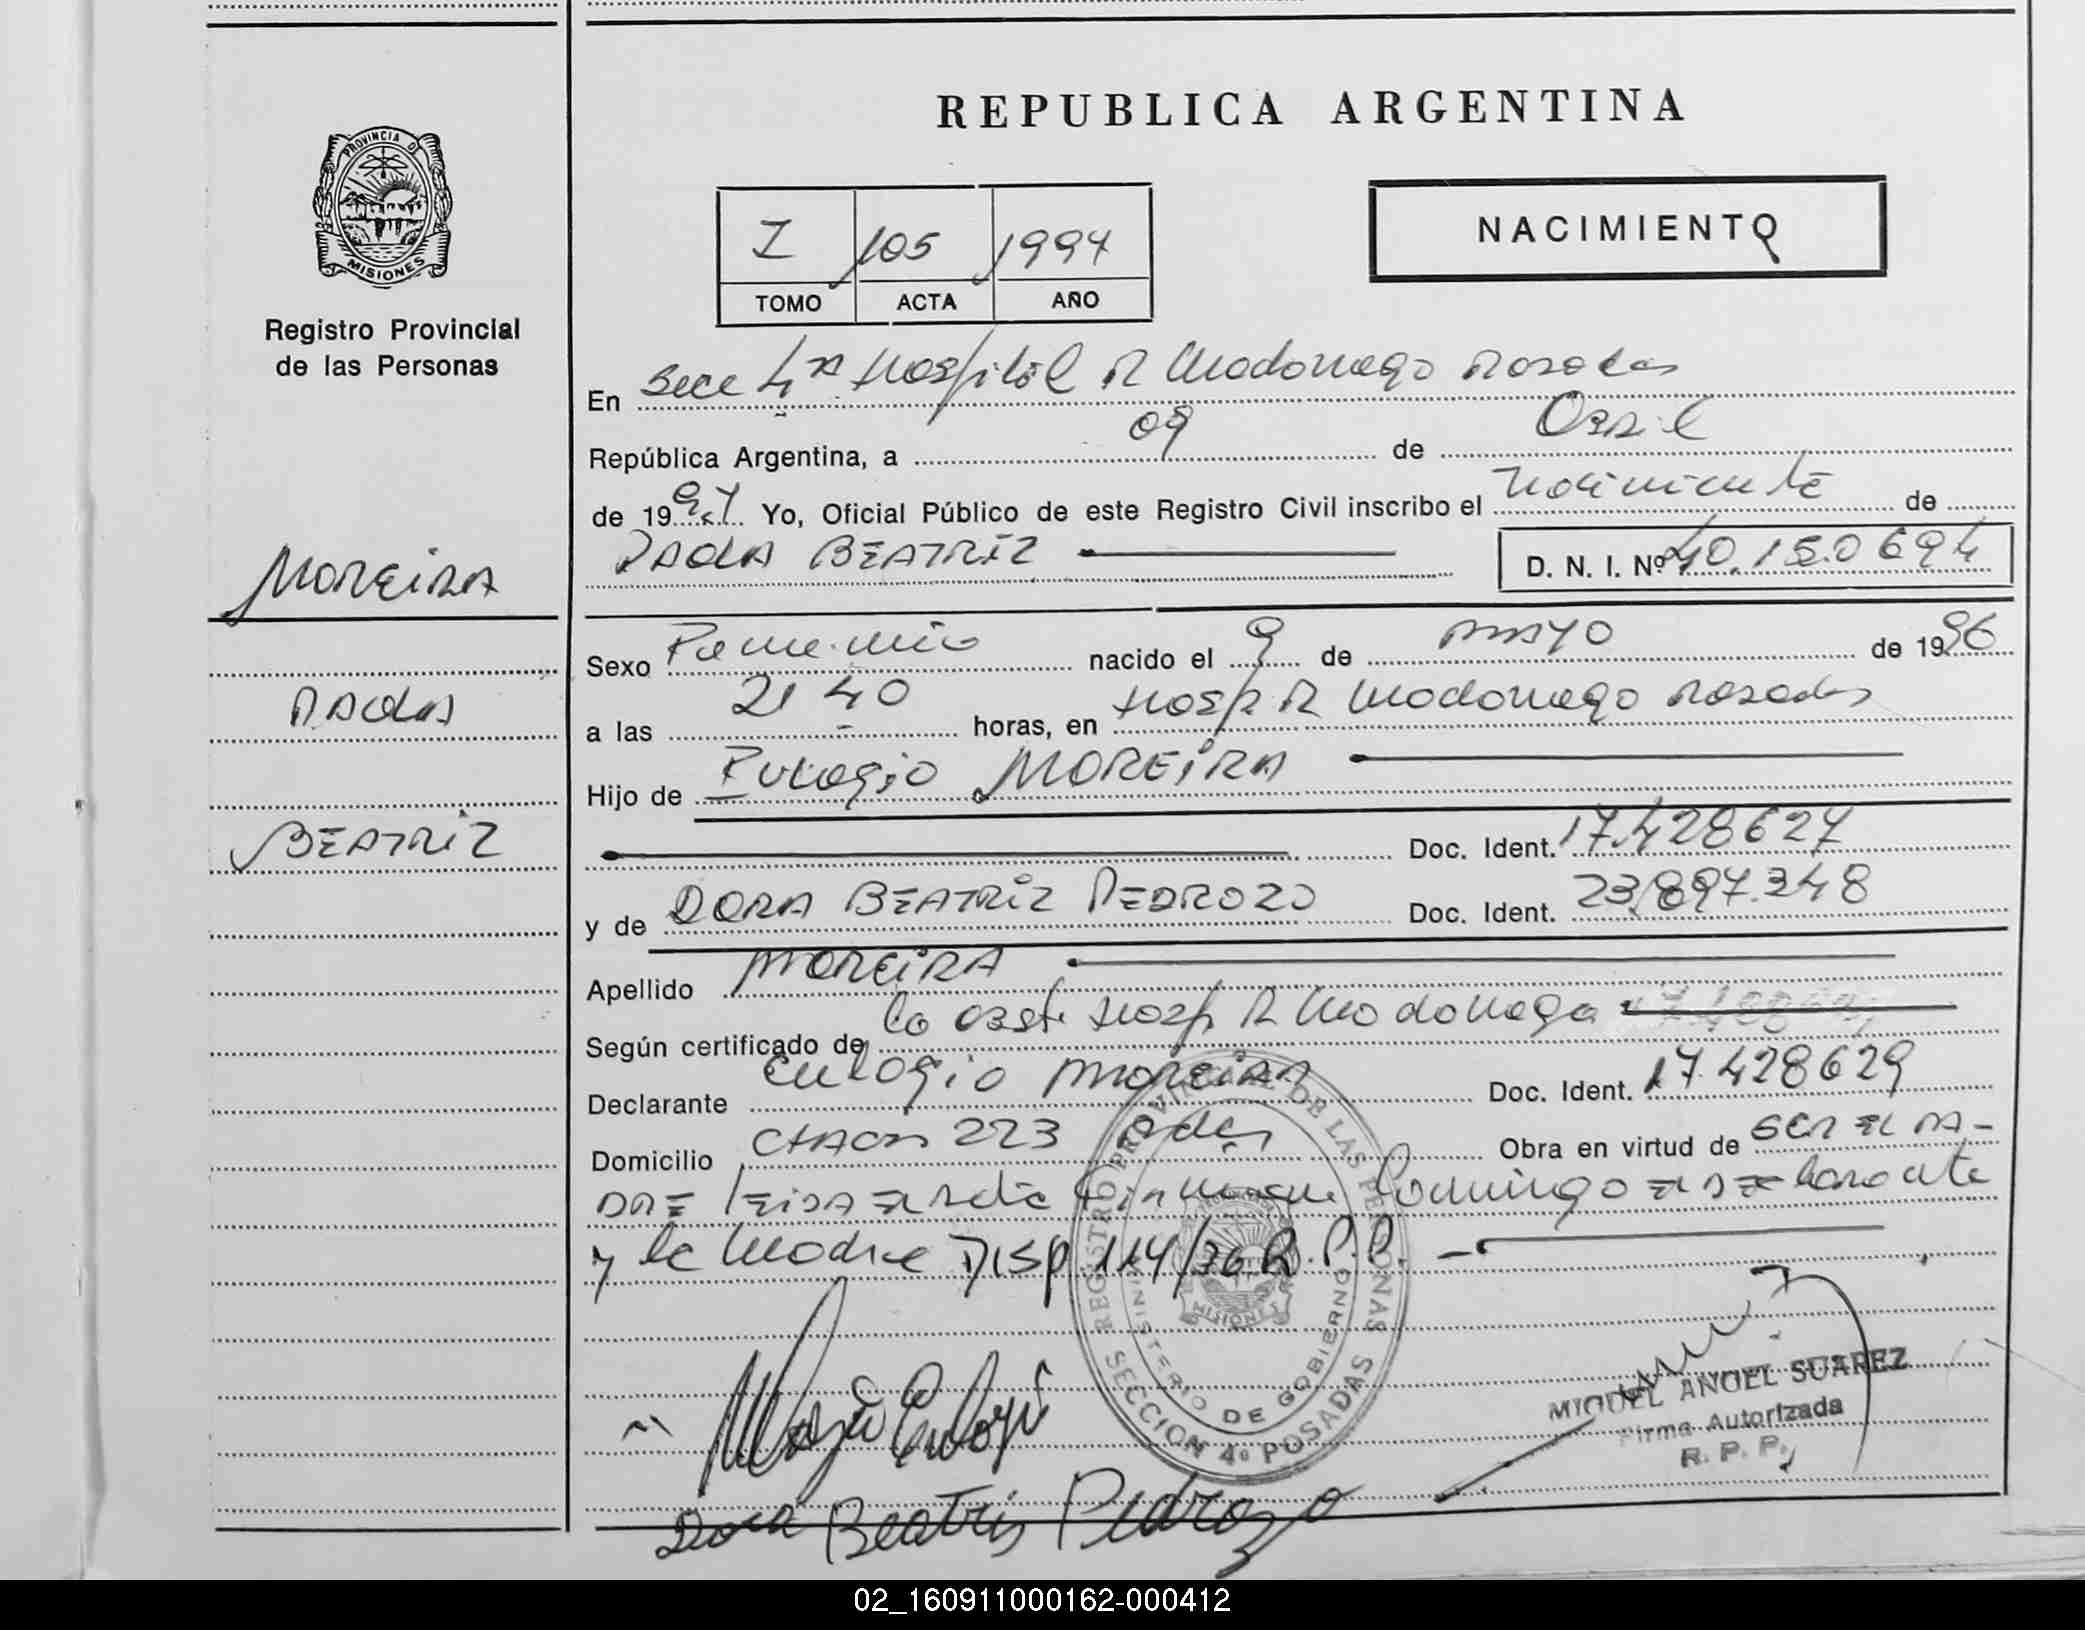 REPUBLICA ARGENTINA
PROVINCIA D
MISIONES
Registro Provincial
de las Personas
NACIMIENTO
I 105 1997
TOMO ACTA AÑO
En Secc 4ª Hospital R Madariaga Posadas
República Argentina, a 09 de Abril
de 1997 Yo, Oficial Público de este Registro Civil inscribo el Nacimiento de
PAOLA BEATRIZ D. N. I. Nº 40.150694
MOREIRA
PAOLA
BEATRIZ
Sexo Femenino nacido el 9 de MAYO de 1996
a las 21 40 horas, en Hosp R Madariaga Posadas
Hijo de Eulogio MOREIRA
Doc. Ident. 17.428627
y de DORA BEATRIZ PEDROZO Doc. Ident. 23.897.348
Apellido MOREIRA
Según certificado de Hosp R Madariaga
Declarante Eulogio Moreira Doc. Ident. 17.428629
Domicilio CHACO 223 Pdas Obra en virtud de SER EL PA-
DRE Leida Acta Firman Domingo el declarante
y la Madre DISP 114/96 R.P.P.
REGISTRO PROVINCIAL DE LAS PERSONAS
MINISTERIO DE GOBIERNO
MISIONES
SECCION 4ª POSADAS
MIGUEL ANGEL SUAREZ
Firma Autorizada
R. P. P.
Moreira Eulogio
Dora Beatris Pedrozo
02_160911000162-000412